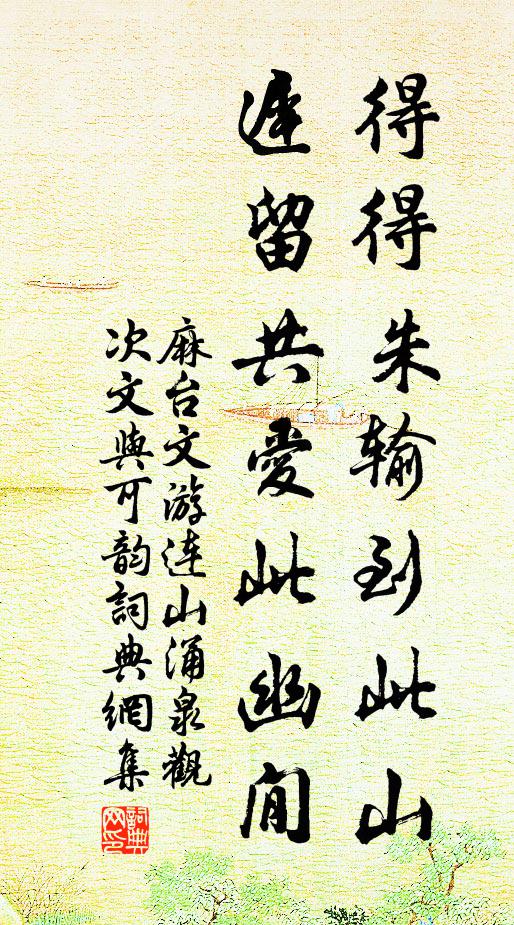 得得朱输到此山
遲留共愛此幽閒
麻台文游连山涌泉觀
次文與可韵詞典網集
詞典网印